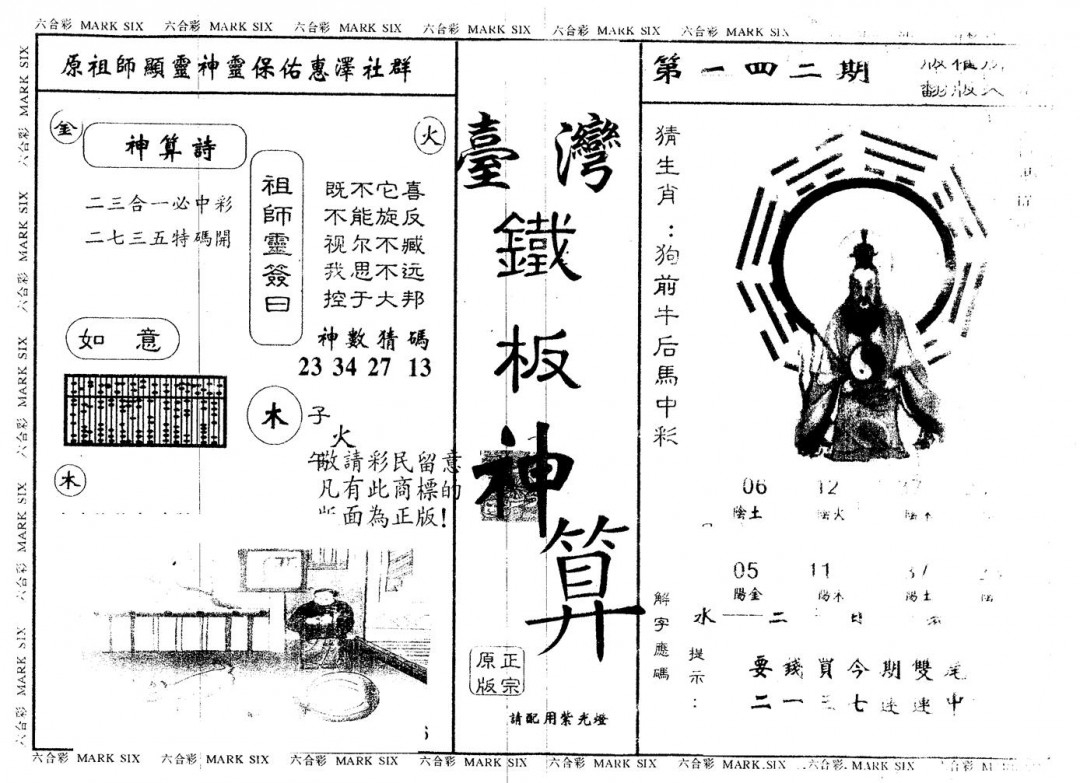 六合彩 MARK SIX 六合彩 MARK SIX 六合彩 MARK SIX 六合彩 MARK SIX 六合彩 MARK SIX 六合彩 MARK SIX
原祖師顯靈神靈保佑惠澤社群
金
神算詩
火
二三合一必中彩
二七三五特碼開
祖師靈簽曰
既不它喜
不能旋反
视尔不臧
我思不远
控于大邦
神數猜碼
23 34 27 13
如意
木 子
火
午
敬請彩民留意
凡有此商標的
版面為正版!
木
臺灣
鐵
板
神
算
正宗
原版
請配用紫光燈
第一四二期
翻版
猜生肖:狗前牛后馬中彩
06 12
陰土 陰火
05 11 37
陽金 陽木 陽土
解字應碼
水 二
提示:
要錢買今期雙尾
二一三七連連中
六合彩 MARK SIX 六合彩 MARK SIX 六合彩 MARK SIX 六合彩 MARK SIX 六合彩 MARK SIX 六合彩 MARK SIX 六合彩 MARK SIX
六合彩 MARK SIX 六合彩 MARK SIX 六合彩 MARK SIX 六合彩 MARK SIX 六合彩 MARK SIX